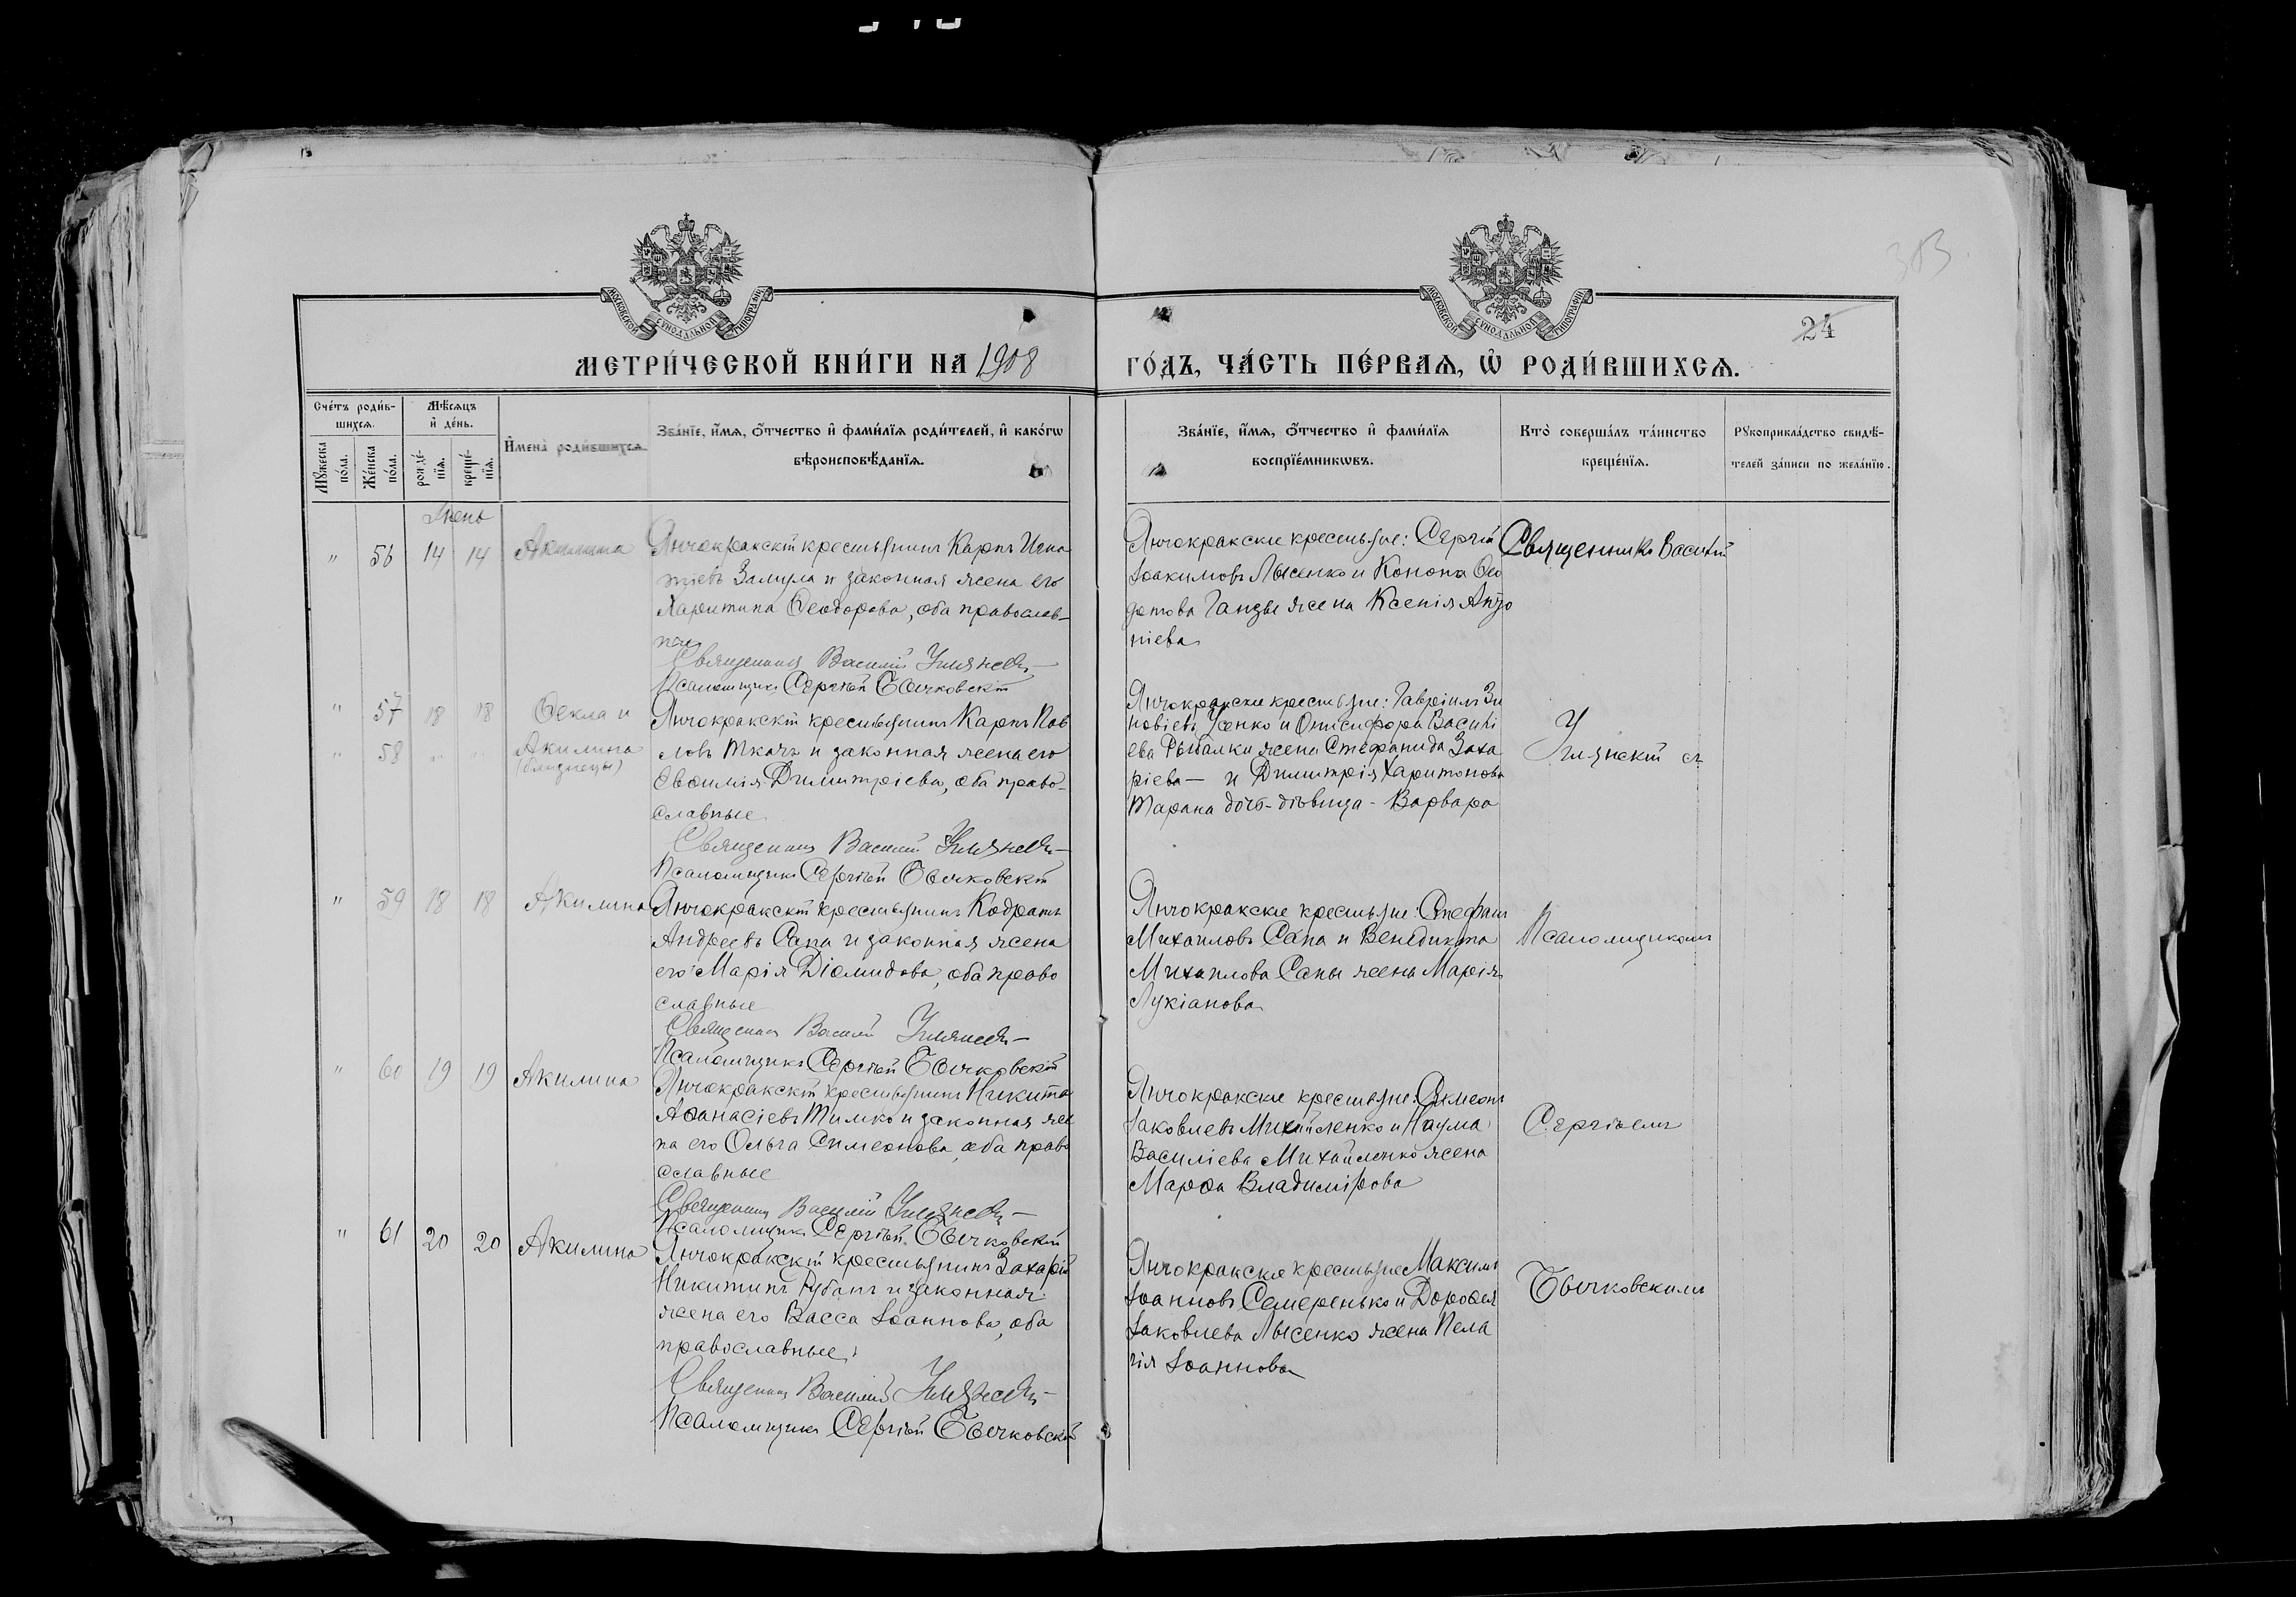 303
24
МОСКОВСКОЙ СѴНОДАЛЬНОЙ ТИПОГРАФІИ
МОСКОВСКОЙ СѴНОДАЛЬНОЙ ТИПОГРАФІИ
МЕТРИ́ЧЕСКОЙ КНИ́ГИ НА 1908
ГО́ДЪ, ЧА́СТЬ ПЕ́РВАѦ, Ѡ҆ РОДИ́ВШИХСѦ.
Сче́тъ роди́в-
шихсѧ.
Мѣ́сѧцъ
и҆ де́нь.
Мꙋ́жеска по́ла.
Же́нска по́ла.
рожде́-
нїѧ.
креще́-
нїѧ.
И҆мена̀ роди́вшихсѧ.
Зва́нїе, и҆́мѧ, ѻ҆́тчество и҆ фами́лїѧ роди́телей, и҆ како́гѡ
вѣроисповѣ́данїѧ.
Зва́нїе, и҆́мѧ, ѻ҆́тчество и҆ фами́лїѧ
воспрїе́мникѡвъ.
Кто̀ соверша́лъ та́инство
креще́нїѧ.
Рꙋкоприкла́дство свидѣ́-
телей за́писи по жела́нїю.
Іюнь
" 56 14 14 Акилина
Янчокракскій крестьянинъ Карпъ Игна
тіевъ Замула и законная жена его
Харитина Ѳеодорова, оба православ-
ные
Священникъ Василій
Псаломщикъ Сергѣй Бычковскій
Янчокракскіе крестьяне: Сергій
Іоакимовъ Лысенко и Конона Ѳео
дотова Ганзы жена Ксенія Анто
ніева
Священникъ Василій
" 57 18 18 Ѳекла и
" 58 " " Акилина
(близнецы)
Янчокракскій крестьянинъ Карпъ Пав
ловъ Ткачъ и законная жена его
Евѳимія Димитріева, оба право-
славные
Священникъ Василій
Псаломщикъ Сергѣй Бычковскій
Янчокракскіе крестьяне: Гавріилъ Зи
новіевъ Усенко и Онисифора Василі
ева Рыбалки жена Стефанида Заха
ріева — и Димитрія Харитонова
Тарана дочь-дѣвица - Варвара
" 59 18 18 Акилина
Янчокракскій крестьянинъ Кодратъ
Андреевъ Сапа и законная жена
его Марія Діомидова, оба право
славные
Священникъ Василій
Псаломщикъ Сергѣй Бычковскій
Янчокракскіе крестьяне: Стефанъ
Михаиловъ Сапа и Венедикта
Михаилова Сапы жена Марія
Лукіанова
Псаломщикомъ
" 60 19 19 Акилина
Янчокракскій крестьянинъ Никита
Аѳанасіевъ Тимко и законная же
на его Ольга Симеонова, оба право
славные
Священникъ Василій
Псаломщикъ Сергѣй Бычковскій
Янчокракскіе крестьяне: Симеонъ
Іаковлевъ Михайленко и Наума
Василіева Михайленко жена
Марѳа Владимірова
Сергѣемъ
" 61 20 20 Акилина
Янчокракскій крестьянинъ Захарій
Никитинъ Рубанъ и законная
жена его Васса Іоаннова, оба
православные
Священникъ Василій
Псаломщикъ Сергѣй Бычковскій
Янчокракскіе крестьяне Максимъ
Іоанновъ Семеренько и Дороѳея
Іаковлева Лысенко жена Пела
гія Іоаннова
Бычковскимъ